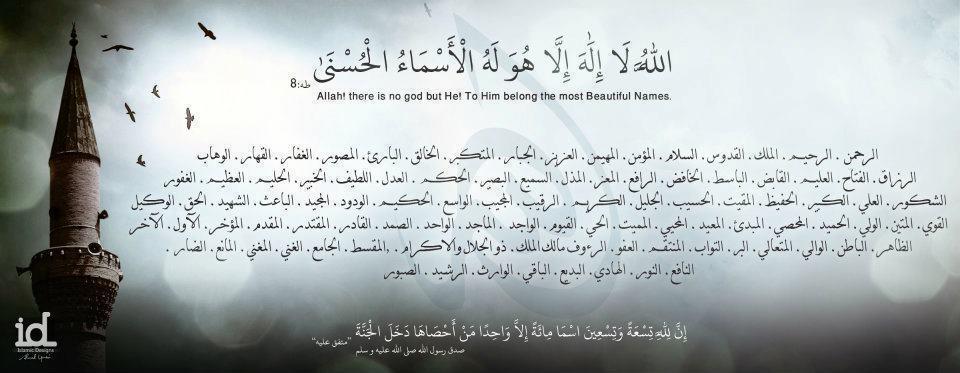 اللهُ لَا إِلَٰهَ إِلَّا هُوَ لَهُ الْأَسْمَاءُ الْحُسْنَىٰ
طه:8
Allah! there is no god but He! To Him belong the most Beautiful Names.
الرحمن . الرحيم . الملك . القدوس . السلام . المؤمن . المهيمن . العزيز . الجبار . المتكبر . الخالق . البارئ . المصور . الغفار . القهار . الوهاب
الرزاق . الفتاح . العليم . القابض . الباسط . الخافض . الرافع . المعز . المذل . السميع . البصير . الحكم . العدل . اللطيف . الخبير . الحليم . العظيم . الغفور
الشكور . العلي . الكبير . الحفيظ . المقيت . الحسيب . الجليل . الكريم . الرقيب . المجيب . الواسع . الحكيم . الودود . المجيد . الباعث . الشهيد . الحق . الوكيل
القوي . المتين . الولي . الحميد . المحصي . المبدئ . المعيد . المحيي . المميت . الحي . القيوم . الواجد . الماجد . الواحد . الصمد . القادر . المقتدر . المقدم . المؤخر . الأول . الآخر
الظاهر . الباطن . الوالي . المتعالي . البر . التواب . المنتقم . العفو . الرءوف مالك الملك . ذو الجلال والاكرام . , المقسط . الجامع . الغني . المغني . المانع . الضار .
النافع . النور . الهادي . البديع . الباقي . الوارث . الرشيد . الصبور
إِنَّ لِلَّهِ تِسْعَةً وَتِسْعِينَ اسْمَا مِائَةً إِلَّا وَاحِدًا مَنْ أَحْصَاهَا دَخَلَ الْجَنَّةَ "متفق عليه"
صدق رسول الله صلى الله عليه و سلم
id
Islamic Designs